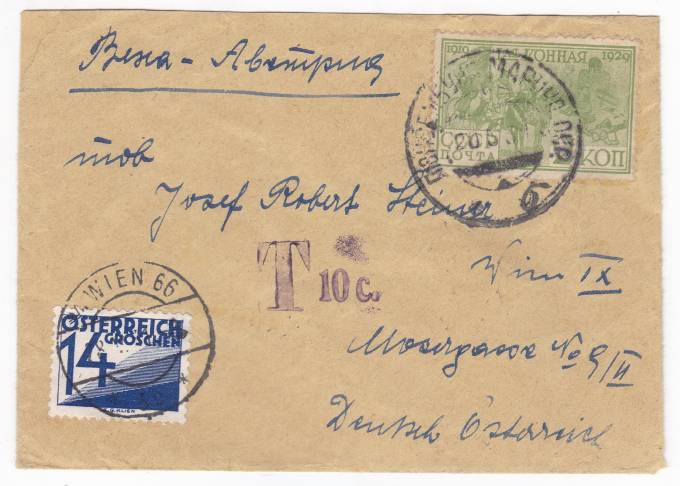 Вена - Австрия
1919 КОННАЯ 1929
ПОЧТА КОП
МАРИУП. ОКР.
20 5
б
тов
Josef Robert Steiner
T 10 c.
Wien IX
WIEN 66
ÖSTERREICH
GROSCHEN
14
Mosergasse No 9/II
Deutsch Österreich